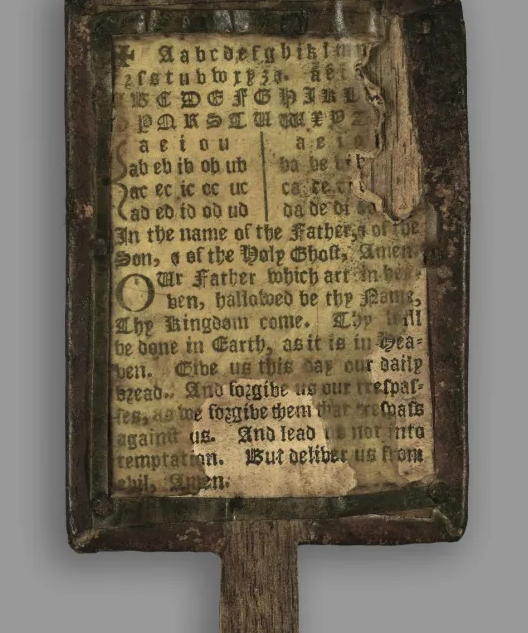 ✠ Aabcdefghiklm
ꝛſstubwxyzꝫ. aei
BCDEFGHIKL
PQRSTUWXYZ
a e i o u a e i o
ab eb ib ob ub ba be
ac ec ic oc uc ca ce
ad ed id od ud da de di
In the name of the Father, & of the
Son, & of the Holy Ghoſt, Amen.
OUr Father which art in hea-
ven, hallowed be thy Name,
Thy Kingdom come. Thy will
be done in Earth, as it is in Hea-
ven. Give us this day our daily
bread. And forgive us our treſpaſ-
ſes, as we forgive them that treſpaſs
againſt us. And lead us not into
temptation. But deliver us from
evil, Amen.